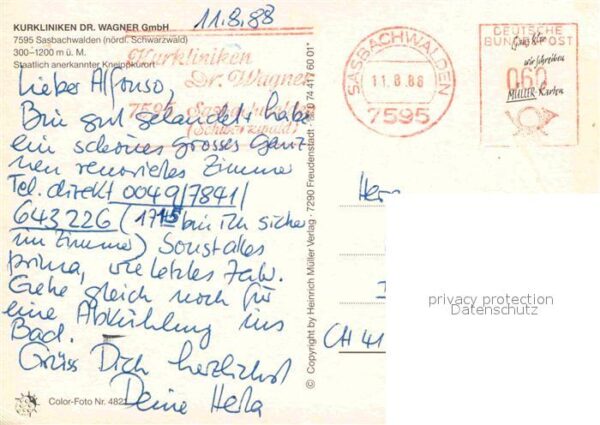 11.8.88
KURKLINIKEN DR. WAGNER GmbH
7595 Sasbachwalden (nördl. Schwarzwald)
300–1200 m ü. M.
Staatlich anerkannter Kneippkurort
Kurkliniken
Dr. Wagner
7595 Sasbachwalden
(Schwarzwald)
SASBACHWALDEN
11.8.88
7595
DEUTSCHE
BUNDESPOST
060
Grüße
wir schreiben
MÜLLER-Karten
Lieber Alfonso,
Bin gut gelandet + habe
ein schönes grosses ganz
neu renoviertes Zimmer
Tel. direkt 0049/7841/
643226 (17 15 bin ich sicher
im Zimmer) Sonst alles
prima, wie letztes Jahr.
Gehe gleich noch für
eine Abkühlung ins
Bad.
Grüss Dich herzlichst
Deine Herta
Color-Foto Nr. 482
© Copyright by Heinrich Müller Verlag · 7290 Freudenstadt · 0 74 41 / 7 60 01
Herr
CH 41
privacy protection
Datenschutz